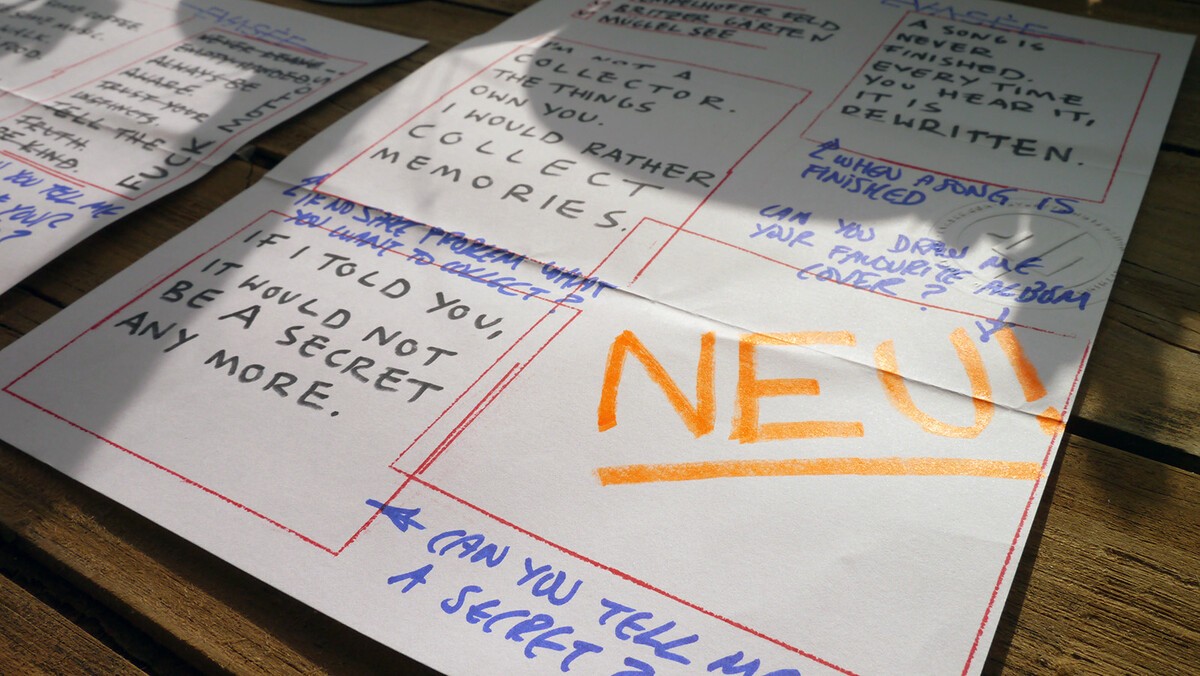 COFFEE.
ALWAYS BE
AWARE
TRUST YOUR
INSTINCTS
TELL THE
TRUTH
BE KIND.
FUCK
YOU TELL ME
YOUR
?
TEMPELHOFER FELD
BRITZER GARTEN
MÜGGELSEE
I'M NOT A
COLLECTOR.
THE THINGS
OWN YOU.
I WOULD RATHER
COLLECT
MEMORIES.
IF NO SPACE PROBLEM WHAT
YOU WANT TO COLLECT?
IF I TOLD YOU,
IT WOULD NOT
BE A SECRET
ANY MORE.
CAN YOU TELL ME
A SECRET?
A SONG IS
NEVER
FINISHED.
EVERY TIME
YOU HEAR IT,
IT IS
REWRITTEN.
WHEN A SONG IS
FINISHED
CAN YOU DRAW ME
YOUR FAVOURITE ALBUM
COVER?
NEU!